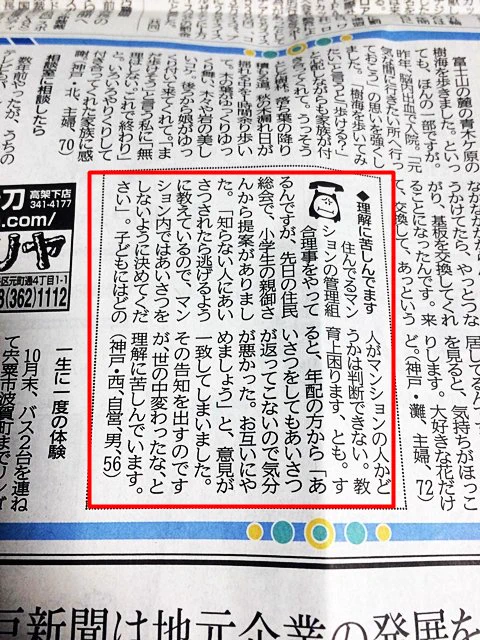 富士山の麓の青木ケ原の
樹海を歩きました。といっ
ても、ほんの一部ですが。
昨年、脳内出血で入院。「元
気な間に行きたい所へ行っ
ておこう」の思いを強くし
ました。「樹海を歩いてみ
たい」と言うと「歩ける?」
と心配しながらも家族が付
き合ってくれて。うっそう
付き合ってくれた家族に感
謝。(神戸・北、主婦、70)
相談室に相談したら
数年前やったが、うちの
うかけてたら、やっとつな
がり、基板を交換してくれ
ることになったんです。来
て、交換して、あっという
◆理解に苦しんでます
住んでるマン
ションの管理組
合理事をやって
るんですが、先日の住民
総会で、小学生の親御さ
んから提案がありまし
た。「知らない人にあい
さつされたら逃げるよう
に教えているので、マン
ション内ではあいさつを
しないように決めてくだ
さい」。子どもにはどの
人がマンションの人かど
うかは判断できない。教
育上困ります、とも。す
ると、年配の方から「あ
いさつをしてもあいさつ
が返ってこないので気分
が悪かった。お互いにや
めましょう」と、意見が
一致してしまいました。
その告知を出すのです
が、世の中変わったな、と
理解に苦しんでいます。
(神戸・西、自営、男、56)
を見ると、気持ちがほっこ
りします。大好きな花だけ
ど。(神戸・灘、主婦、72)
高架下店
341-4177
.com/
区元町通4丁目1-1
(362)1112
一生に一度の体験
10月末、バス2台を連ね
て宍粟市波賀町まで
戸新聞は地元企業の発展を